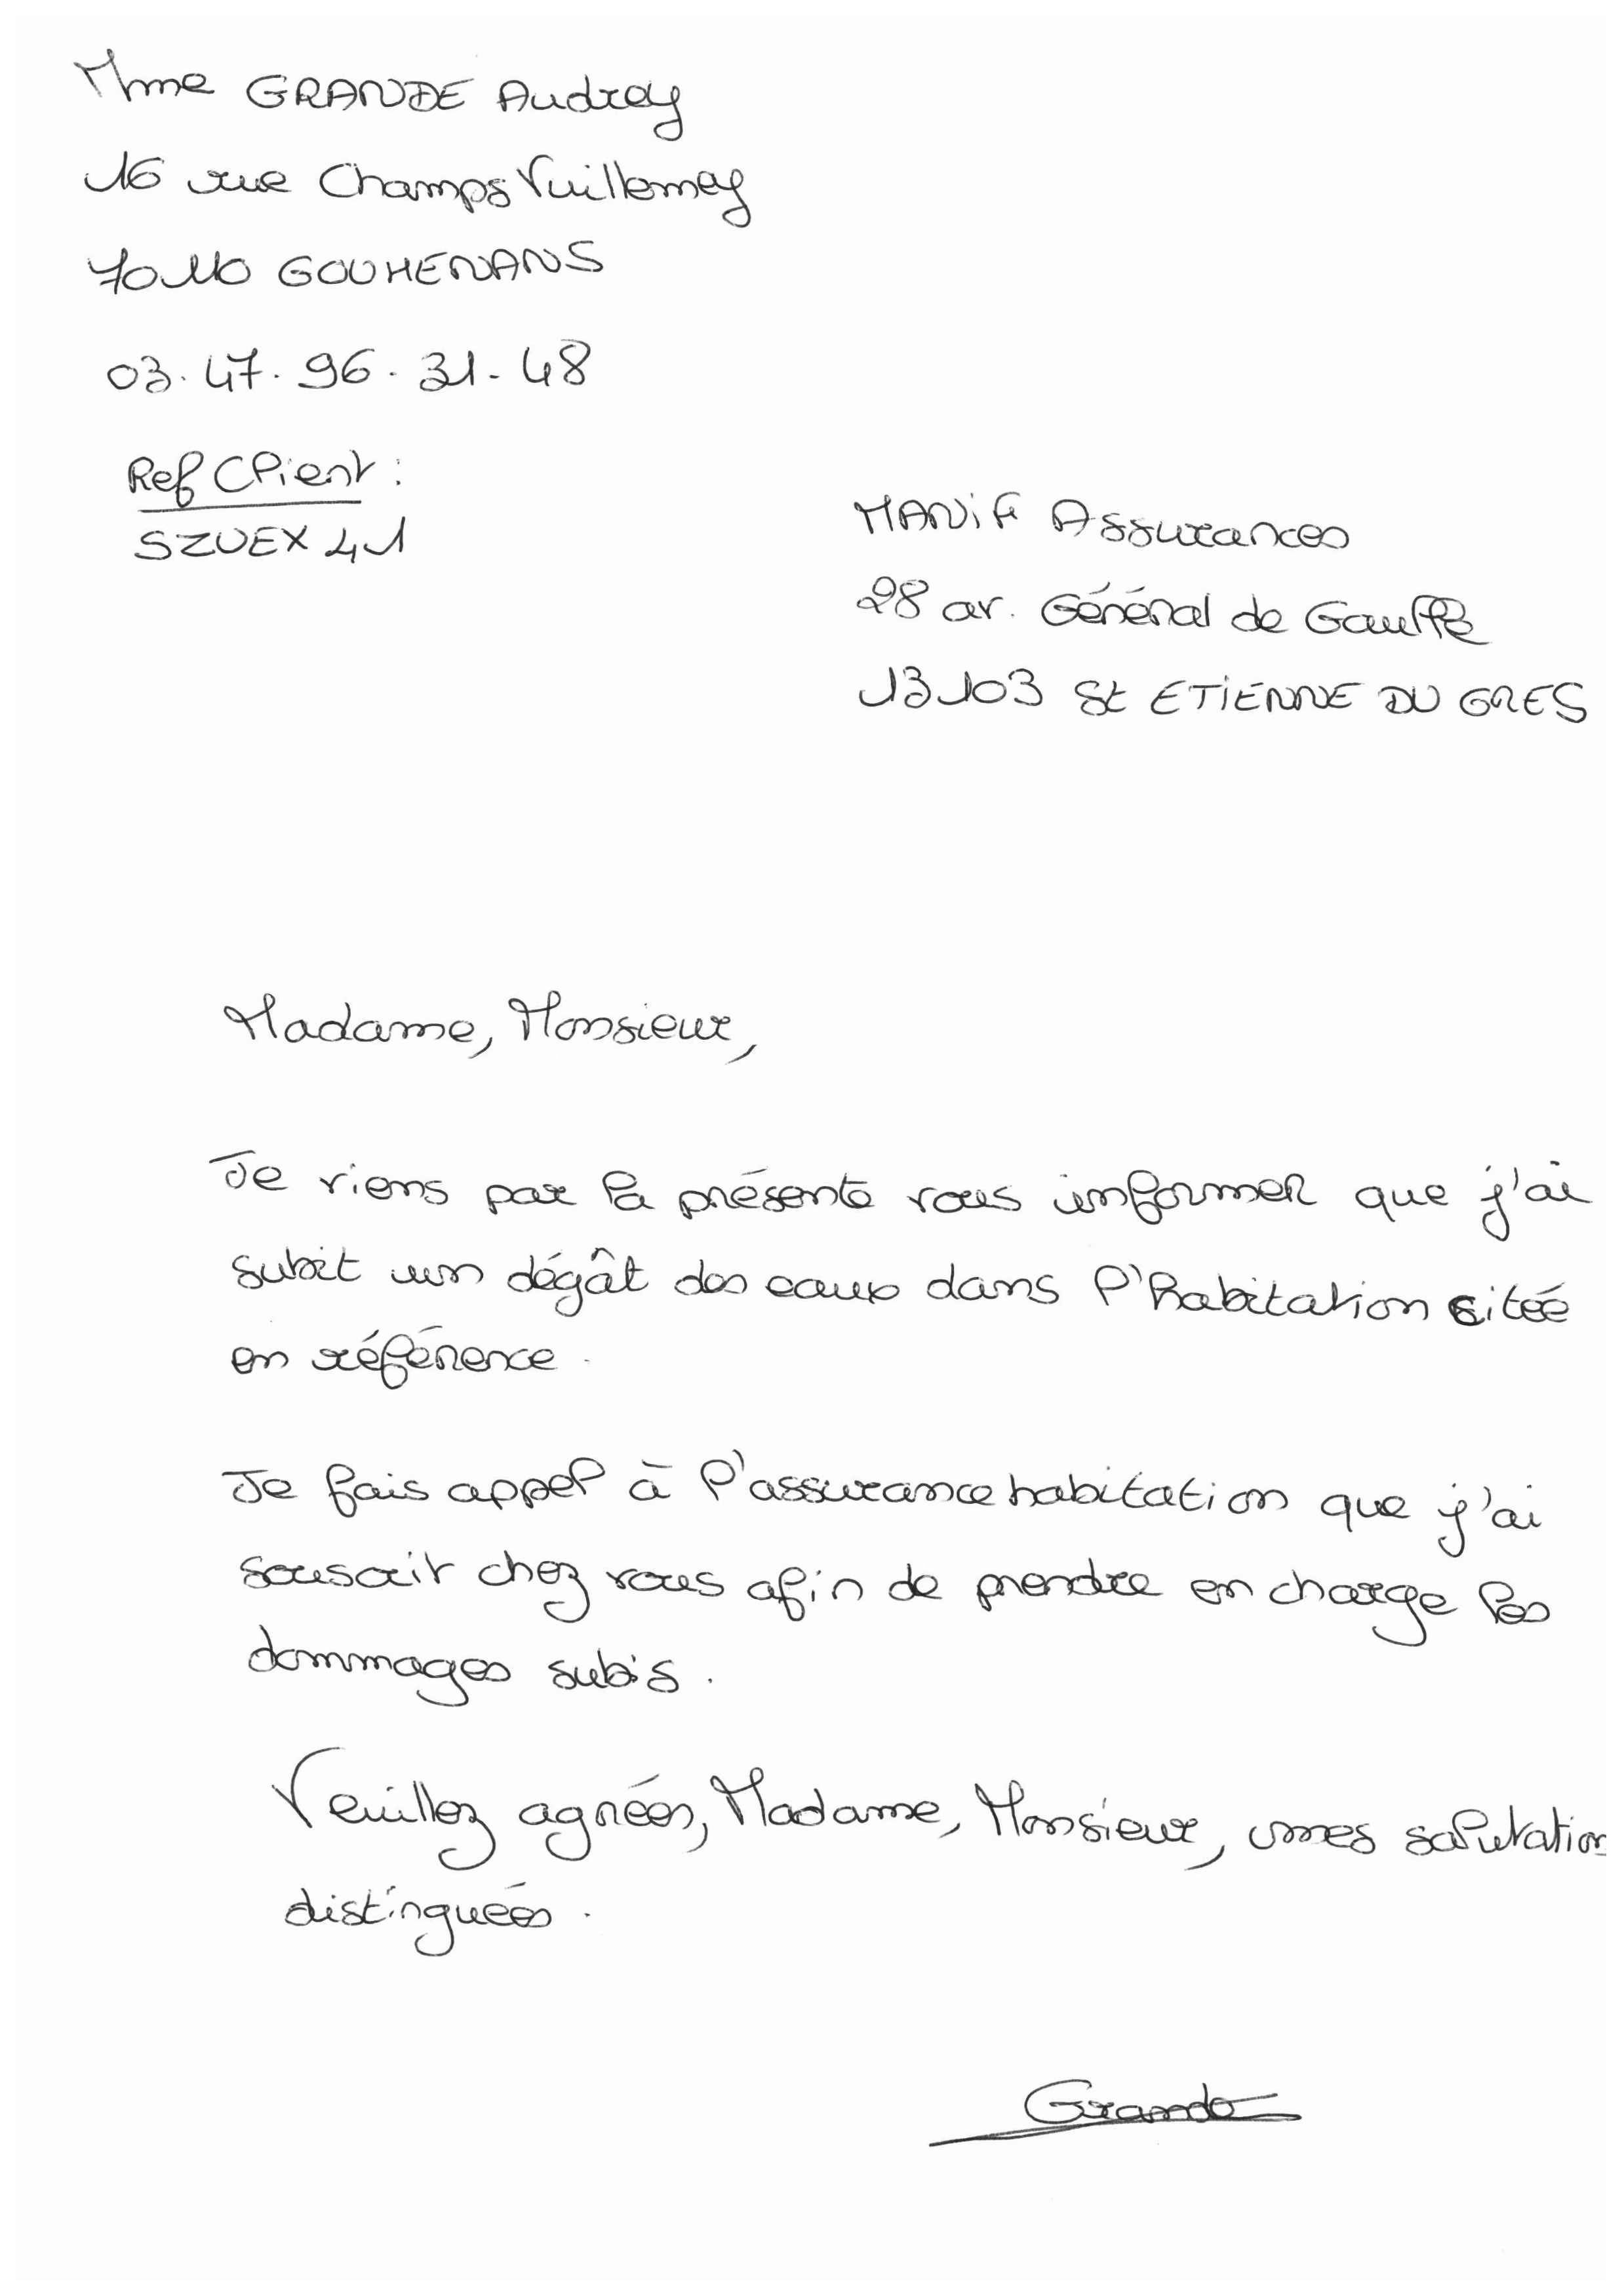 Mme GRANDE Audrey
16 rue Champs Vuillemey
70110 GOUHENANS
03.47.96.31.48
Ref Client :
SZUEX41
MANIF Assurances
28 av. Général de Gaulle
13103 St ETIENNE DU GRES
Madame, Monsieur,
Je viens par la présente vous informer que j'ai
subit un dégât des eaux dans l'habitation citée
en référence.
Je fais appel à l'assurance habitation que j'ai
souscrit chez vous afin de prendre en charge les
dommages subis.
Veuillez agréés, Madame, Monsieur, mes salutation
distinguées.
Grande